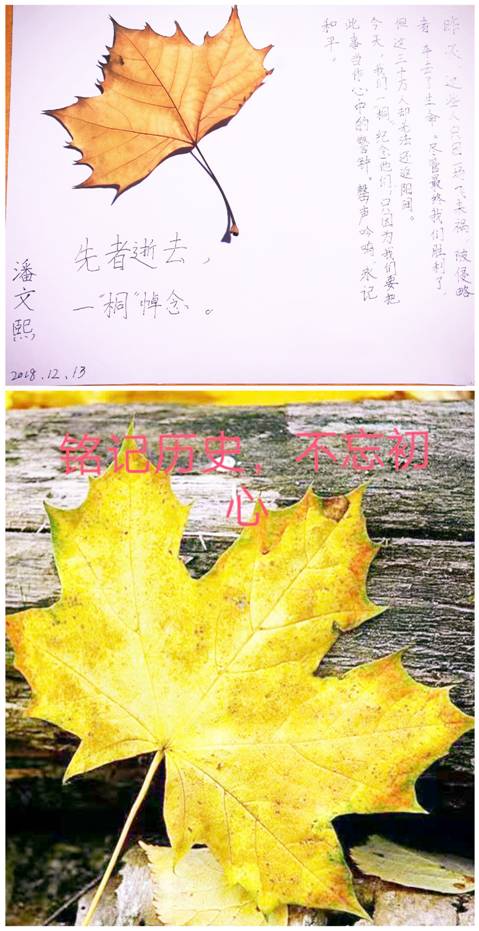 昨天,这些人只因一场飞来祸,被侵略
者夺去了生命。尽管最终我们胜利了,
但这三十万人却无法还返阳间。
今天,我们一“桐”纪念他们,只因为我们要把
此事当作心中的警钟。警声吟响,永记
和平。
先者逝去,
一“桐”悼念。
潘文熙
2018.12.13
铭记历史,不忘初
心